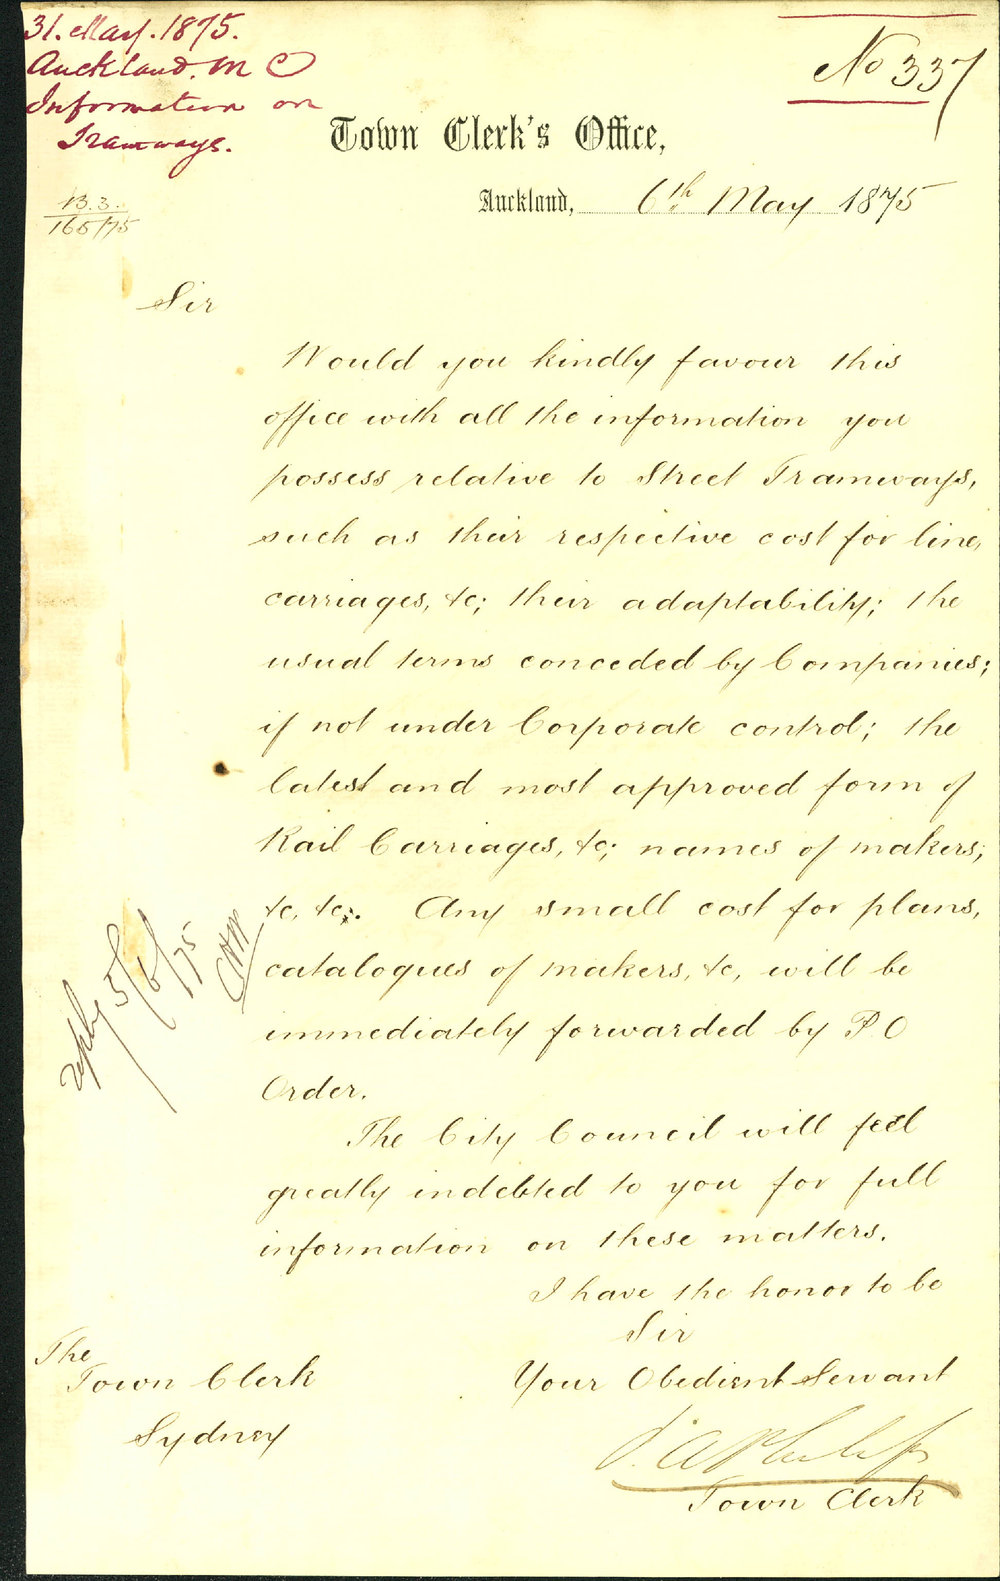 31. May. 1875.
Auckland. M C
Information on
Tramways.
No 337
Town Clerk's Office,
Auckland, 6th May 1875
13.3.
165/75
Sir
Would you kindly favour this
office with all the information you
possess relative to Street Tramways,
such as their respective cost for line,
carriages, &c; their adaptability; the
usual terms conceded by Companies;
if not under Corporate control; the
latest and most approved form of
Rail Carriages, &c; names of makers;
&c, &c;. Any small cost for plans,
catalogues of makers, &c, will be
immediately forwarded by P.O
Order.
reply 5/6/75
The City Council will feel
greatly indebted to you for full
information on these matters.
I have the honor to be
Sir
Your Obedient Servant
P. A. Philips
Town Clerk
The
Town Clerk
Sydney